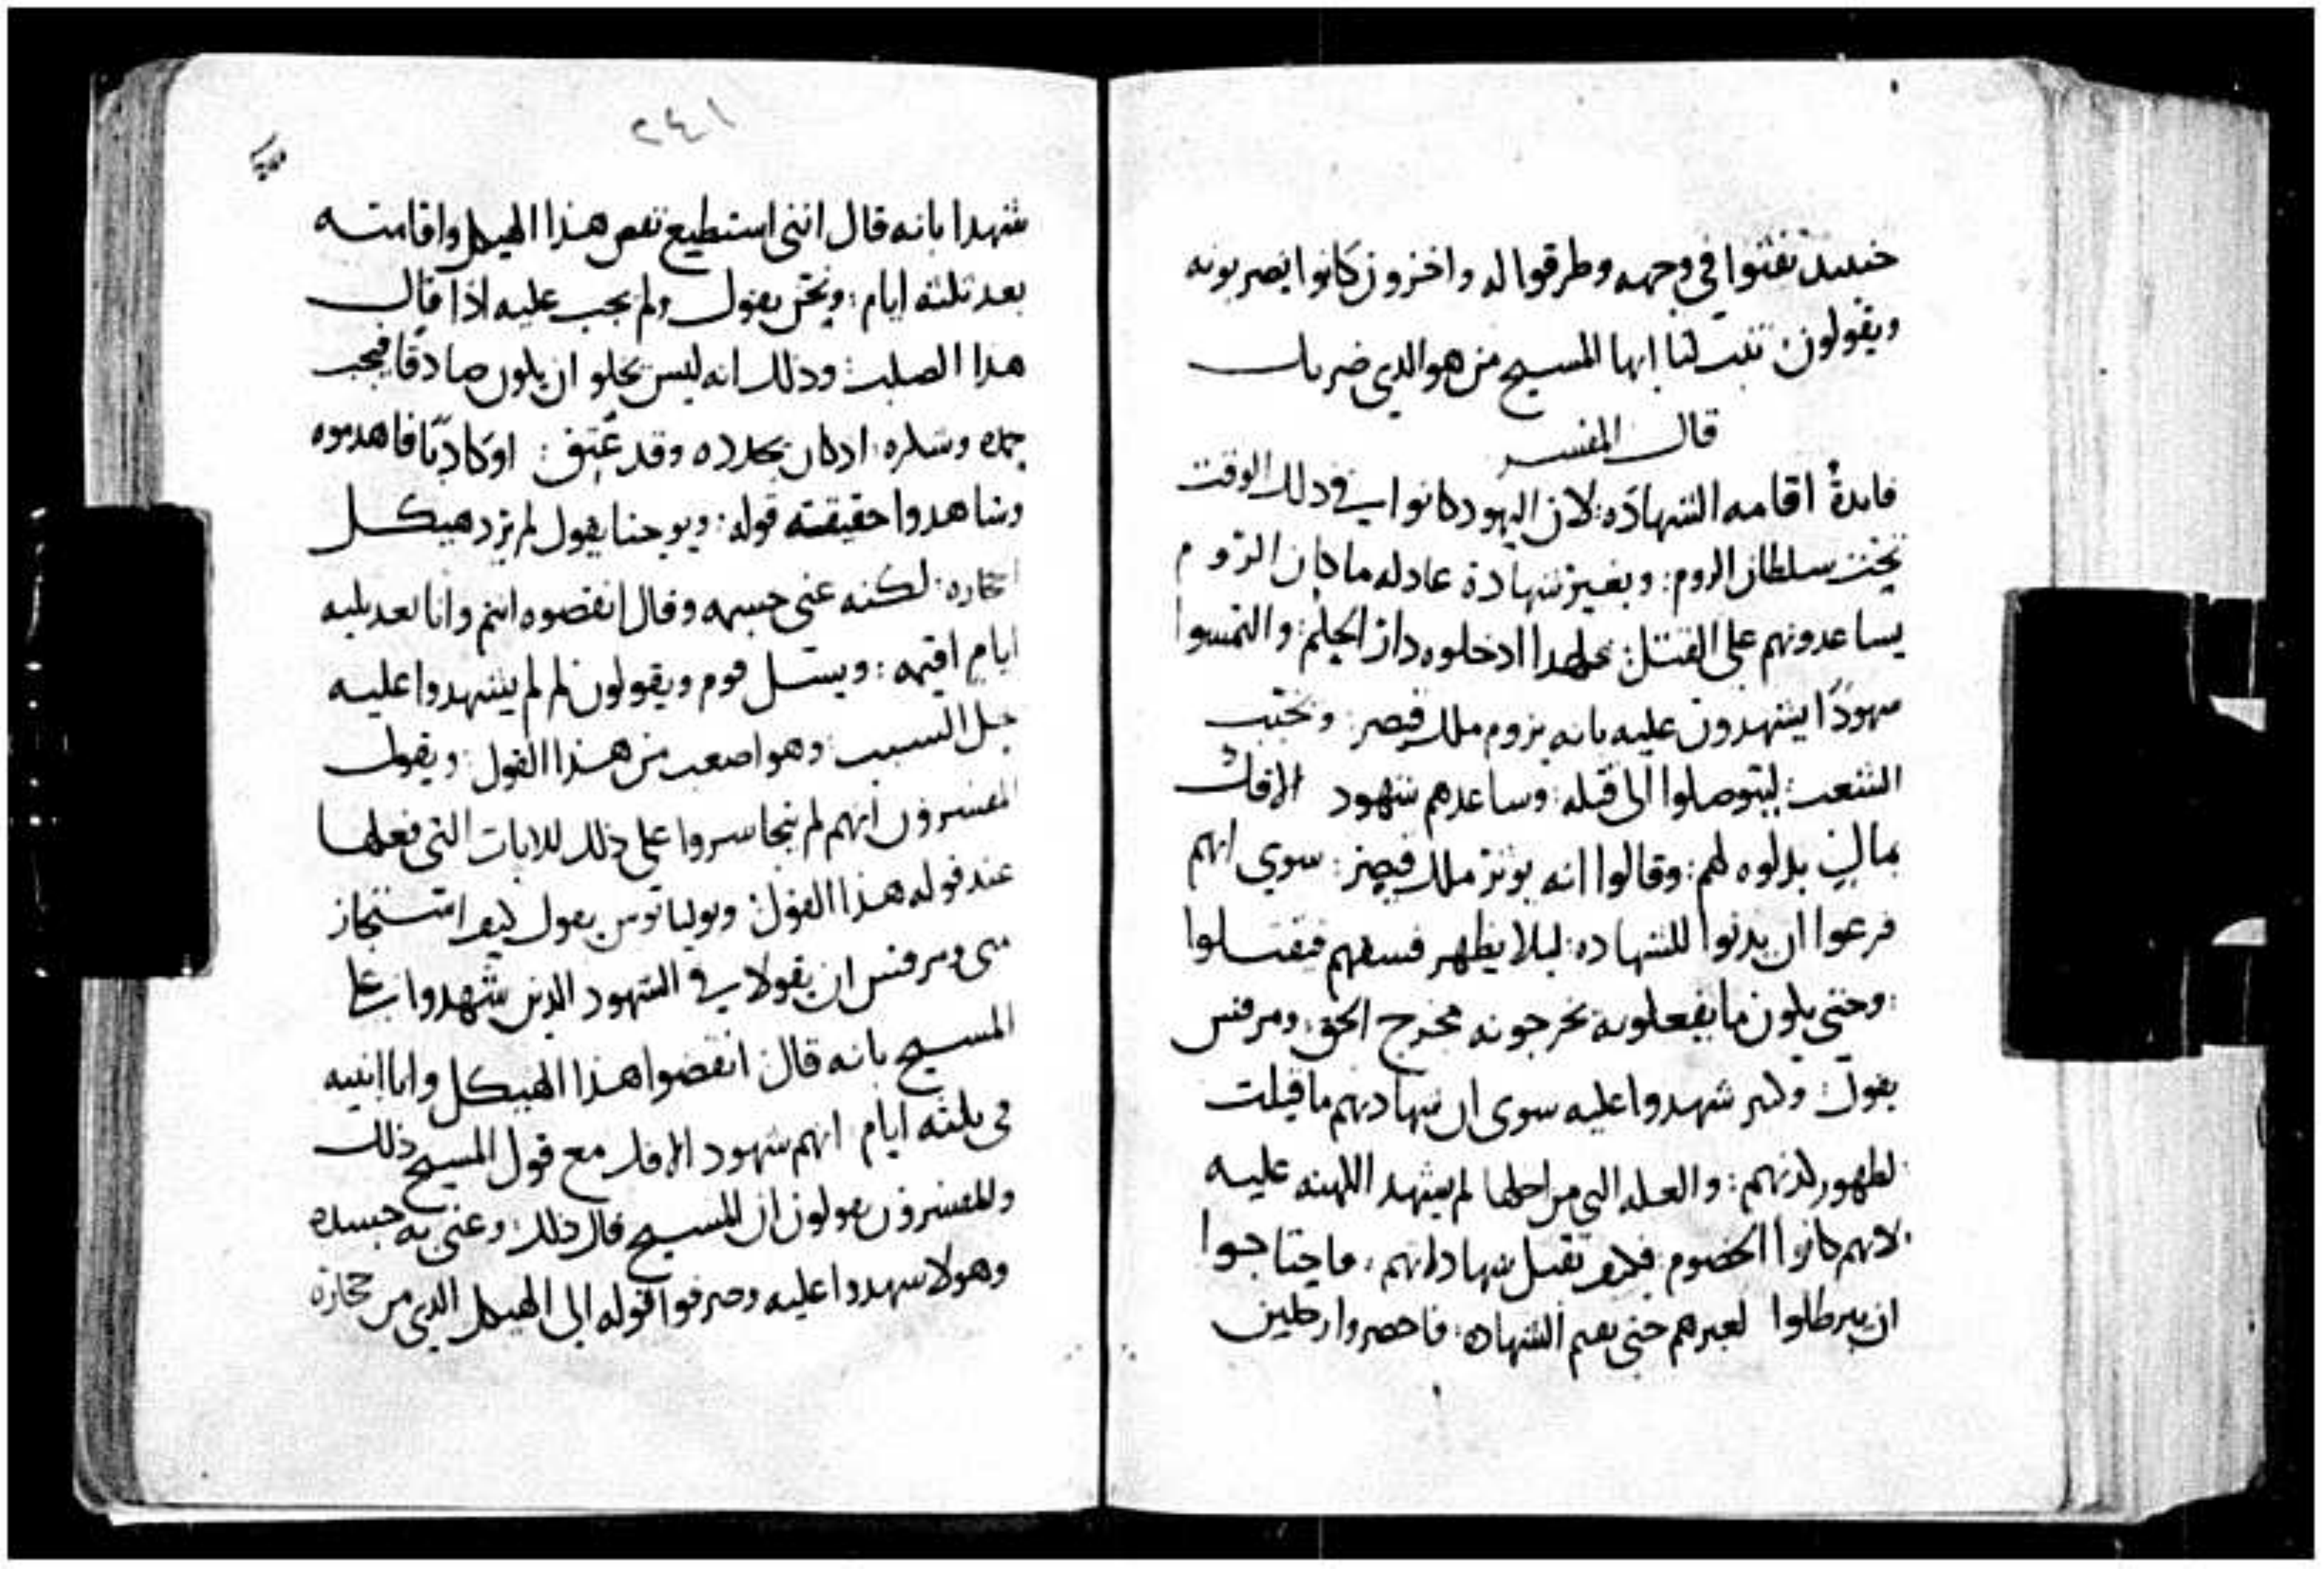 حينيد تفتوا في وجهه وطرقوا له واخرون كانوا يضربونه
ويقولون تنبت لنا ايها المسيح من هو الدي ضربك
قال المفسر
فايدة اقامه الشهاده: لان اليهود كانوا في دلك الوقت
تحت سلطان الروم: وبغير شهادة عادله ما كان الروم
يساعدونهم على القتل: فلهدا ادخلوه دار الحكم: والتمسوا
شهودًا يشهدون عليه بانه يروم ملك قيصر:
الشعب: ليتوصلوا الى قتله: وساعدهم شهود الافك
بمال بدلوه لهم: وقالوا انه يوتر ملك قيصر: سوى انهم
فزعوا ان يدنوا للشهاده: ليلا يظهر فسقهم فيقتلوا
: وحتى يكون ما يفعلونه يخرجونه مخرج الحق: ومرقس
يقول: وكثير شهدوا عليه سوى ان شهادتهم ما قبلت
لظهور كذبهم: والعله التي من اجلها لم يشهد الكهنه عليه
لانهم كانوا الخصوم: فلم تقبل شهادتهم: فاحتاجوا
ان يبرطلوا لغيرهم حتى يقيم الشهاده: فاحضروا رجلين
٢٤١
شهدا بانه قال انني استطيع نقض هذا الهيكل واقامته
بعد ثلثه ايام: ونحن نقول ولم يجب عليه اذا قال
هدا الصلب: ودلك انه ليس يخلو ان يكون صادقًا فيجب
حمده وشكره: اد كان يجدده وقد عتق: او كادبًا فاهدموه
وشاهدوا حقيقته قوله: ويوحنا يقول لم يرد هيكل
الحجاره: لكنه عنى جسمه وقال انقضوه انتم وانا بعد ثلثه
ايام اقيمه: ويسل قوم ويقولون لم لم يشهدوا عليه
بحل السبت: وهو اصعب من هذا القول: ويقول
المفسرون انهم لم يتجاسروا على ذلك للايات التي فعلها
عند قوله هذا القول: ويوليانوس يقول كيف استجاز
متى ومرقس ان يقولا في الشهود الدين شهدوا على
المسيح بانه قال انقضوا هذا الهيكل وانا ابنيه
في ثلثه ايام انهم شهود الافك مع قول المسيح ذلك
والمفسرون يقولون ان المسيح قال ذلك: وعنى به جسده
وهولا شهدوا عليه وصرفوا قوله الى الهيكل الدي من حجاره